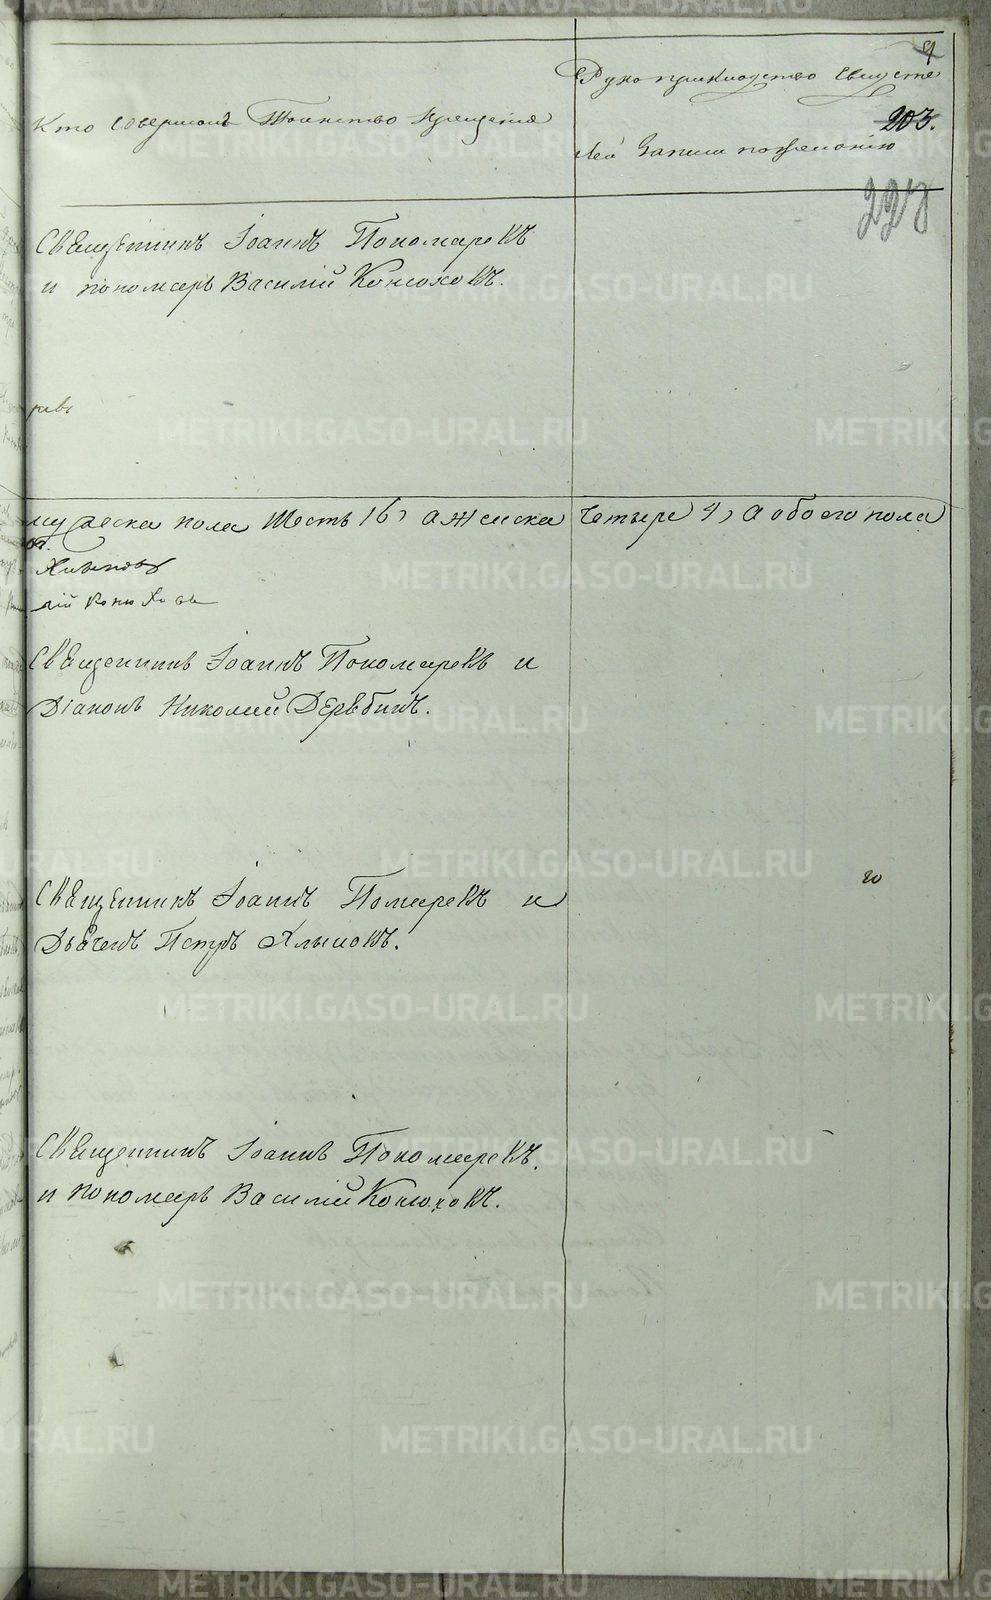 9
Рукоприкладство свидете
203.
Кто совершалъ Таинство Крещенія
лей записи по желанію
227
Священникъ Іоаннъ Пономаревъ
и пономарь Василій Конюховъ.
мужеска пола шесть /6/ а женска четыре 4, а обоего пола
Хлыновъ
лій Конюховъ
Священникъ Іоаннъ Пономаревъ и
Діаконъ Николай Дерябинъ.
Священникъ Іоаннъ Помаревъ и
Дьячекъ Петръ Хлыновъ.
Священникъ Іоаннъ Пономаревъ.
и пономарь Василій Конюховъ.
METRIKI.GASO-URAL.RU